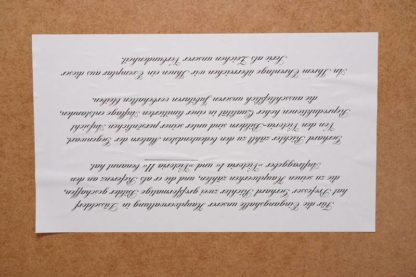 Für die Eingangshalle unserer Hauptverwaltung in Düsseldorf
hat Professor Gerhard Richter zwei großformatige Bilder geschaffen,
die zu seinen Hauptwerken zählen, und die er als Referenz an den
Auftraggeber »Victoria I« und »Victoria II« benannt hat.
Gerhard Richter zählt zu den bedeutendsten Malern der Gegenwart.
Von den Victoria-Bildern sind unter seiner Aufsicht
Reproduktionen hoher Qualität in einer limitierten Auflage entstanden,
die ausschließlich unseren Jubilaren vorbehalten bleiben.
An Ihrem Ehrentage überreichen wir Ihnen ein Exemplar aus dieser
Serie als Zeichen unserer Verbundenheit.